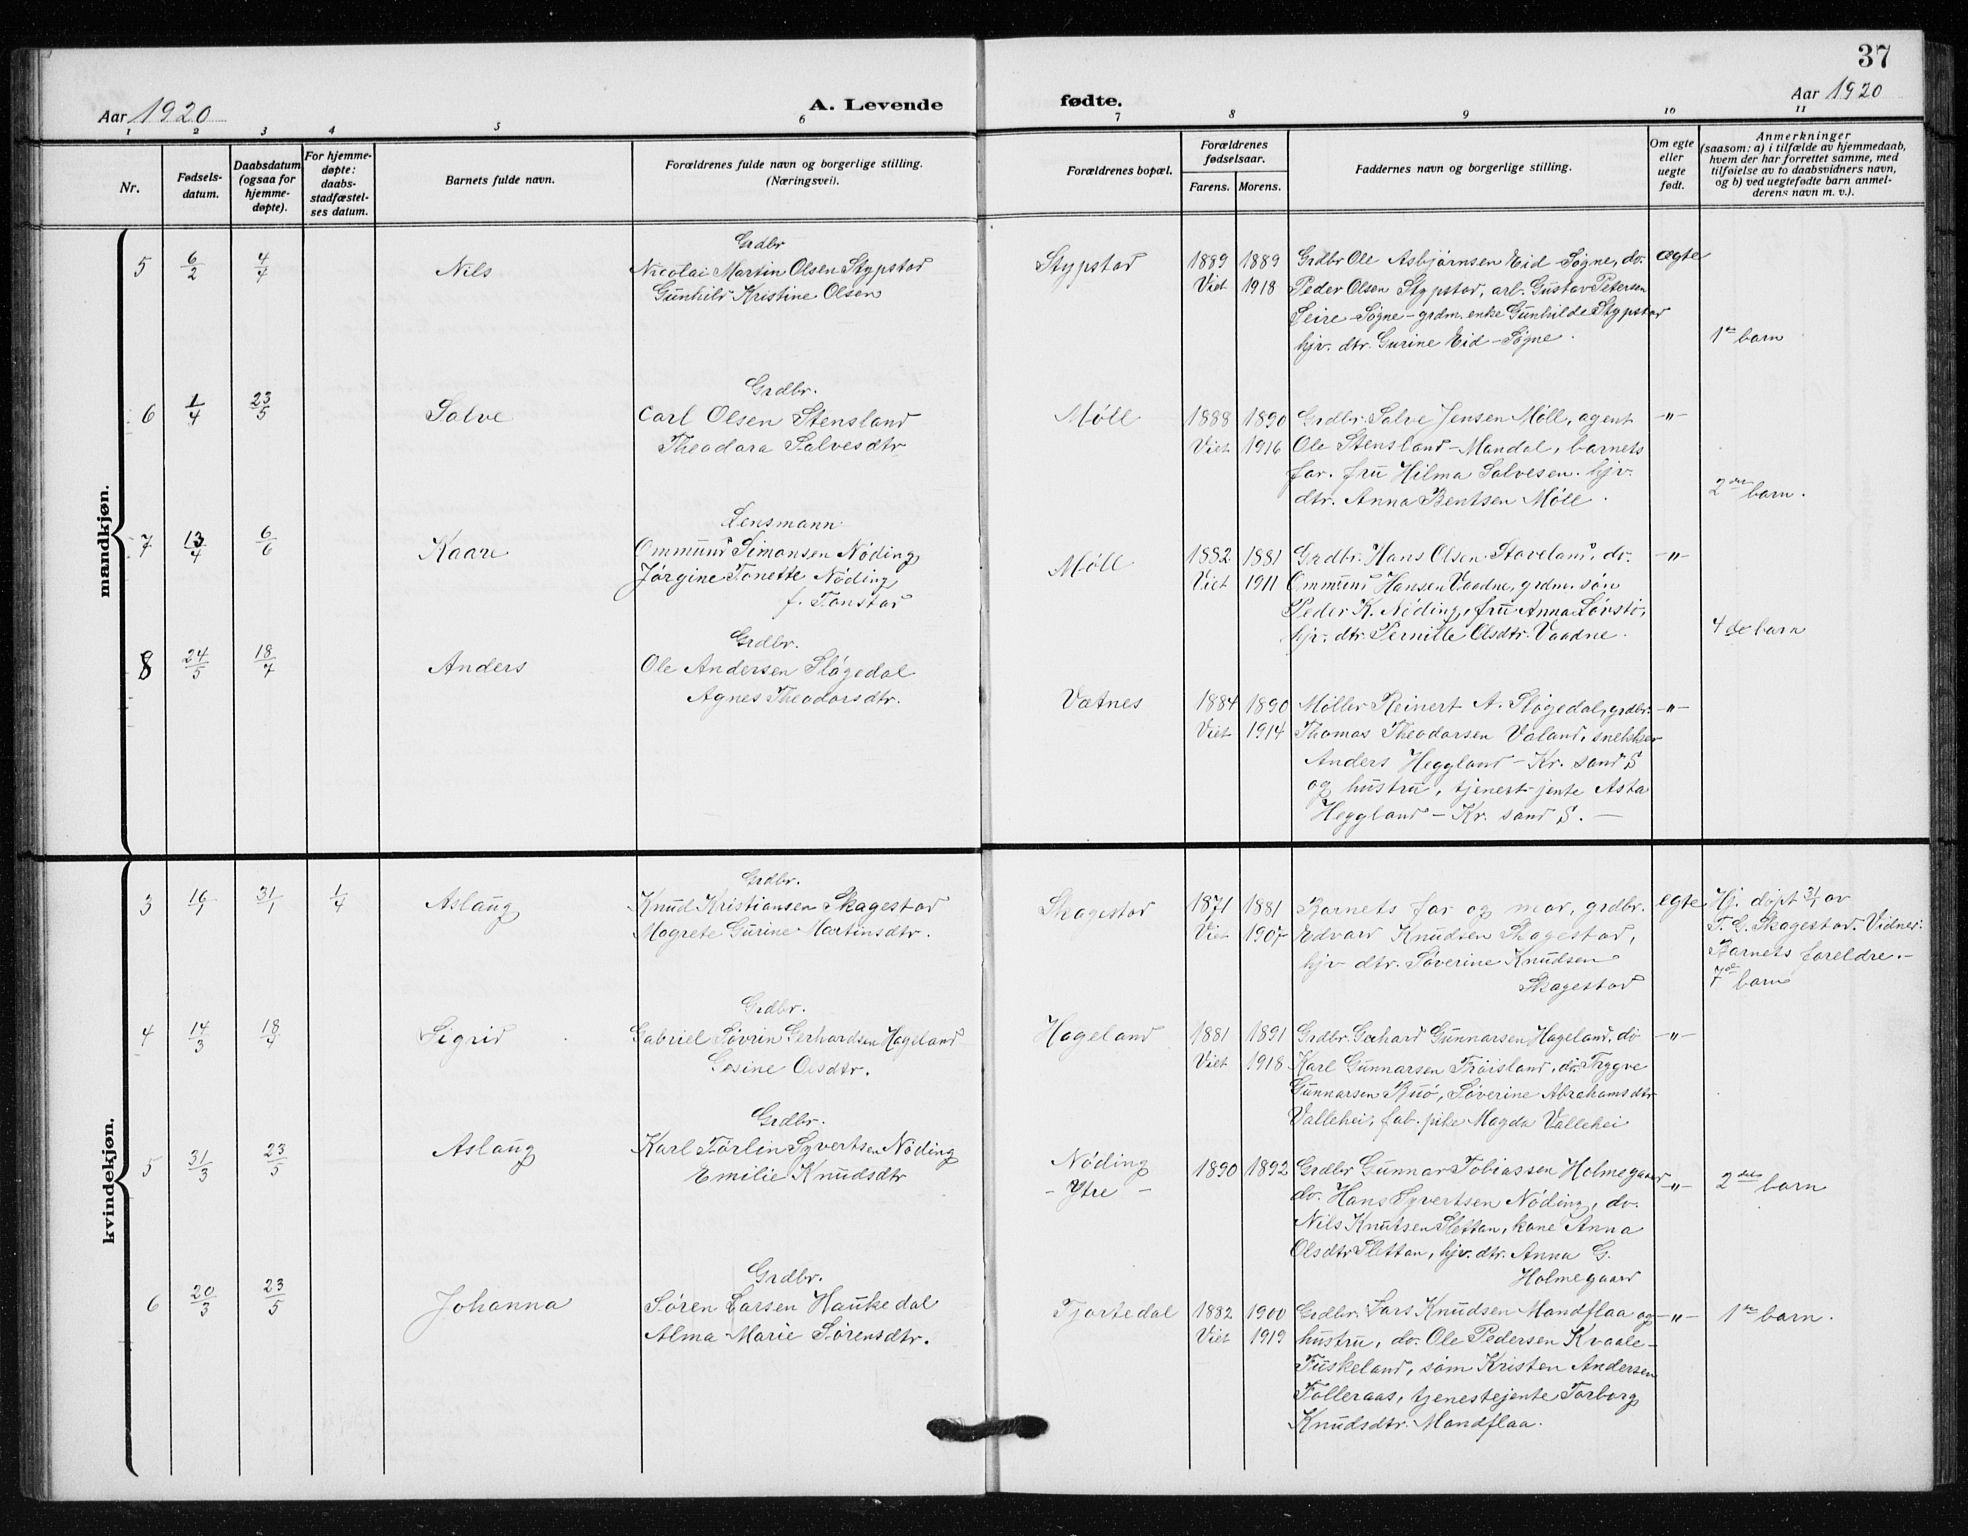 37
Aar 1920
A. Levende
fødte.
Aar 1920
1 2 3 4 5 6 7 8 9 10 11
Nr.
Fødsels-
datum.
Daabsdatum
(ogsaa for
hjemme-
døpte).
For hjemme-
døpte:
daabs-
stadfæstel-
ses datum.
Barnets fulde navn.
Forældrenes fulde navn og borgerlige stilling.
(Næringsvei).
Forældrenes bopæl.
Forældrenes
fødselsaar.
Farens. Morens.
Faddernes navn og borgerlige stilling.
Om egte
eller
uegte
født.
Anmerkninger
(saasom: a) i tilfælde av hjemmedaab,
hvem der har forrettet samme, med
tilføielse av to daabsvidners navn,
og b) ved uegtefødte barn anmel-
derens navn m. v.).
mandkjøn.
5 6/2 4/4 Nils
Grdbr
Nicolai Martin Olsen Stypstad
Gunhild Kristine Olsen
Stypstad
1889 1889
Viet 1918
Grdbr Ole Asbjørnsen Eid - Søgne, do.
Peder Olsen Stypstad, arb. Gustav Petersen
Leire - Søgne - grdm. enke Gunhilde Stypstad
hjv. dtr. Gurine Eid - Søgne.
ægte
1ste barn
6 1/4 23/5 Salve
Grdbr.
Carl Olsen Stensland
Theodora Salvesdtr
Møll
1888 1890
Viet 1916
Grdbr. Salve Jensen Møll, agent
Ole Stensland - Mandal, barnets
far. fru Hilma Salvesen. hjv.
dtr. Anna Bentsen Møll.
-"-
2det barn.
7 13/4 6/6 Kaare
Lensmann
Ommund Simonsen Nøding
Jørgine Tonette Nøding
f. Tonstad
Møll
1882 1881
Viet 1911
Grdbr. Hans Olsen Staveland, do.
Ommund Hansen Vaadne, grdm. søn
Peder K. Nøding, fru Anna Lørstø,
hjv. dtr. Pernille Olsdtr. Vaadne.
-"-
4de barn
8 24/5 18/7 Anders
Grdbr.
Ole Andersen Støgedal
Agnes Theodorsdtr.
Vatnes
1884 1890
Viet 1914
Møller Reinert A. Støgedal, grdbr.
Thomas Theodorsen Valand, snekker
Anders Heggland - Kr. sand S
og hustru, tjenestjente Asta
Heggland - Kr. sand S. -
-"-
kvindekjøn.
3 16/1 31/1 1/4 Aslaug
Grdbr.
Knud Kristiansen Skagestad
Magrete Gurine Martinsdtr.
Skagestad
1871 1881
Viet 1907
Barnets far og mor, grdbr.
Edvard Knudsen Skagestad,
hjv dtr. Søverine Knudsen
Skagestad
egte
Hj. døpt 31/1 av
T. C. Skagestad. Vidner:
Barnets foreldre. -
7de barn
4 14/3 18/4 Sigrid
Grdbr.
Gabriel Søvrin Gerhardsen Hageland
Gesine Olsdtr.
Hageland
1881 1891
Viet 1918
Grdbr. Gerhard Gunnarsen Hageland, do
Karl Gunnarsen Frøisland, do. Trygve
Gunnarsen Buø, Søverine Abrahamsdtr
Vallehei, fab. pike Magda Vallehei
-"-
5 31/3 23/5 Aslaug
Grdbr.
Karl Torlin Syvertsen Nøding
Emilie Knudsdtr
Nøding
- Ytre -
1890 1892
Grdbr Gunnar Tobiassen Holmegaard
do. Hans Syvertsen Nøding, do.
Nils Knutsen Slettan, kone Anna
Olsdtr Slettan, hjv. dtr. Anna G.
Holmegaard
-"-
2det barn
6 20/3 23/5 Johanna
Grdbr.
Søren Larsen Haukedal
Alma Marie Sørensdtr.
Tjortedal
1882 1900
Viet 1919
Grdbr. Lars Knudsen Mandflaa og
hustru, do. Ole Pedersen Kvaale -
Fuskeland, søm Kristen Andersen
Folleraas, tjenestejente Torborg
Knudsdtr. Mandflaa.
-"-
1ste barn.